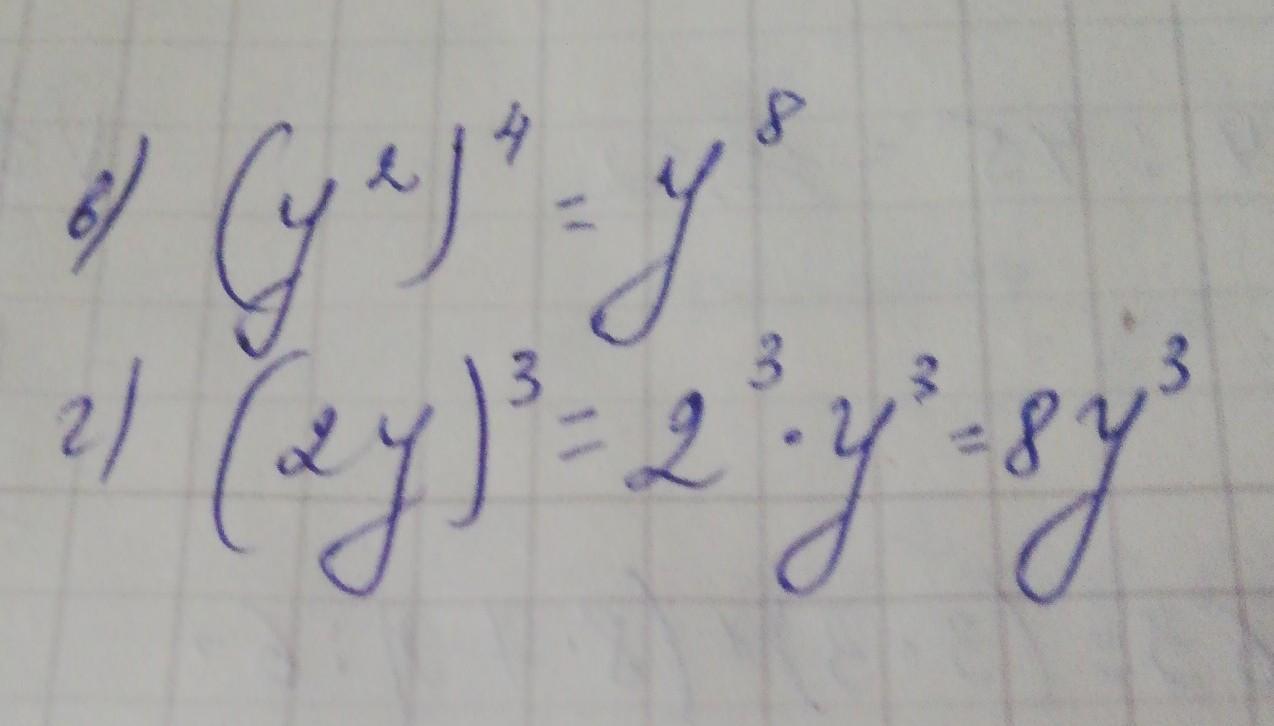 в) (y²)⁴ = y⁸
г) (2y)³ = 2³ · y³ = 8y³